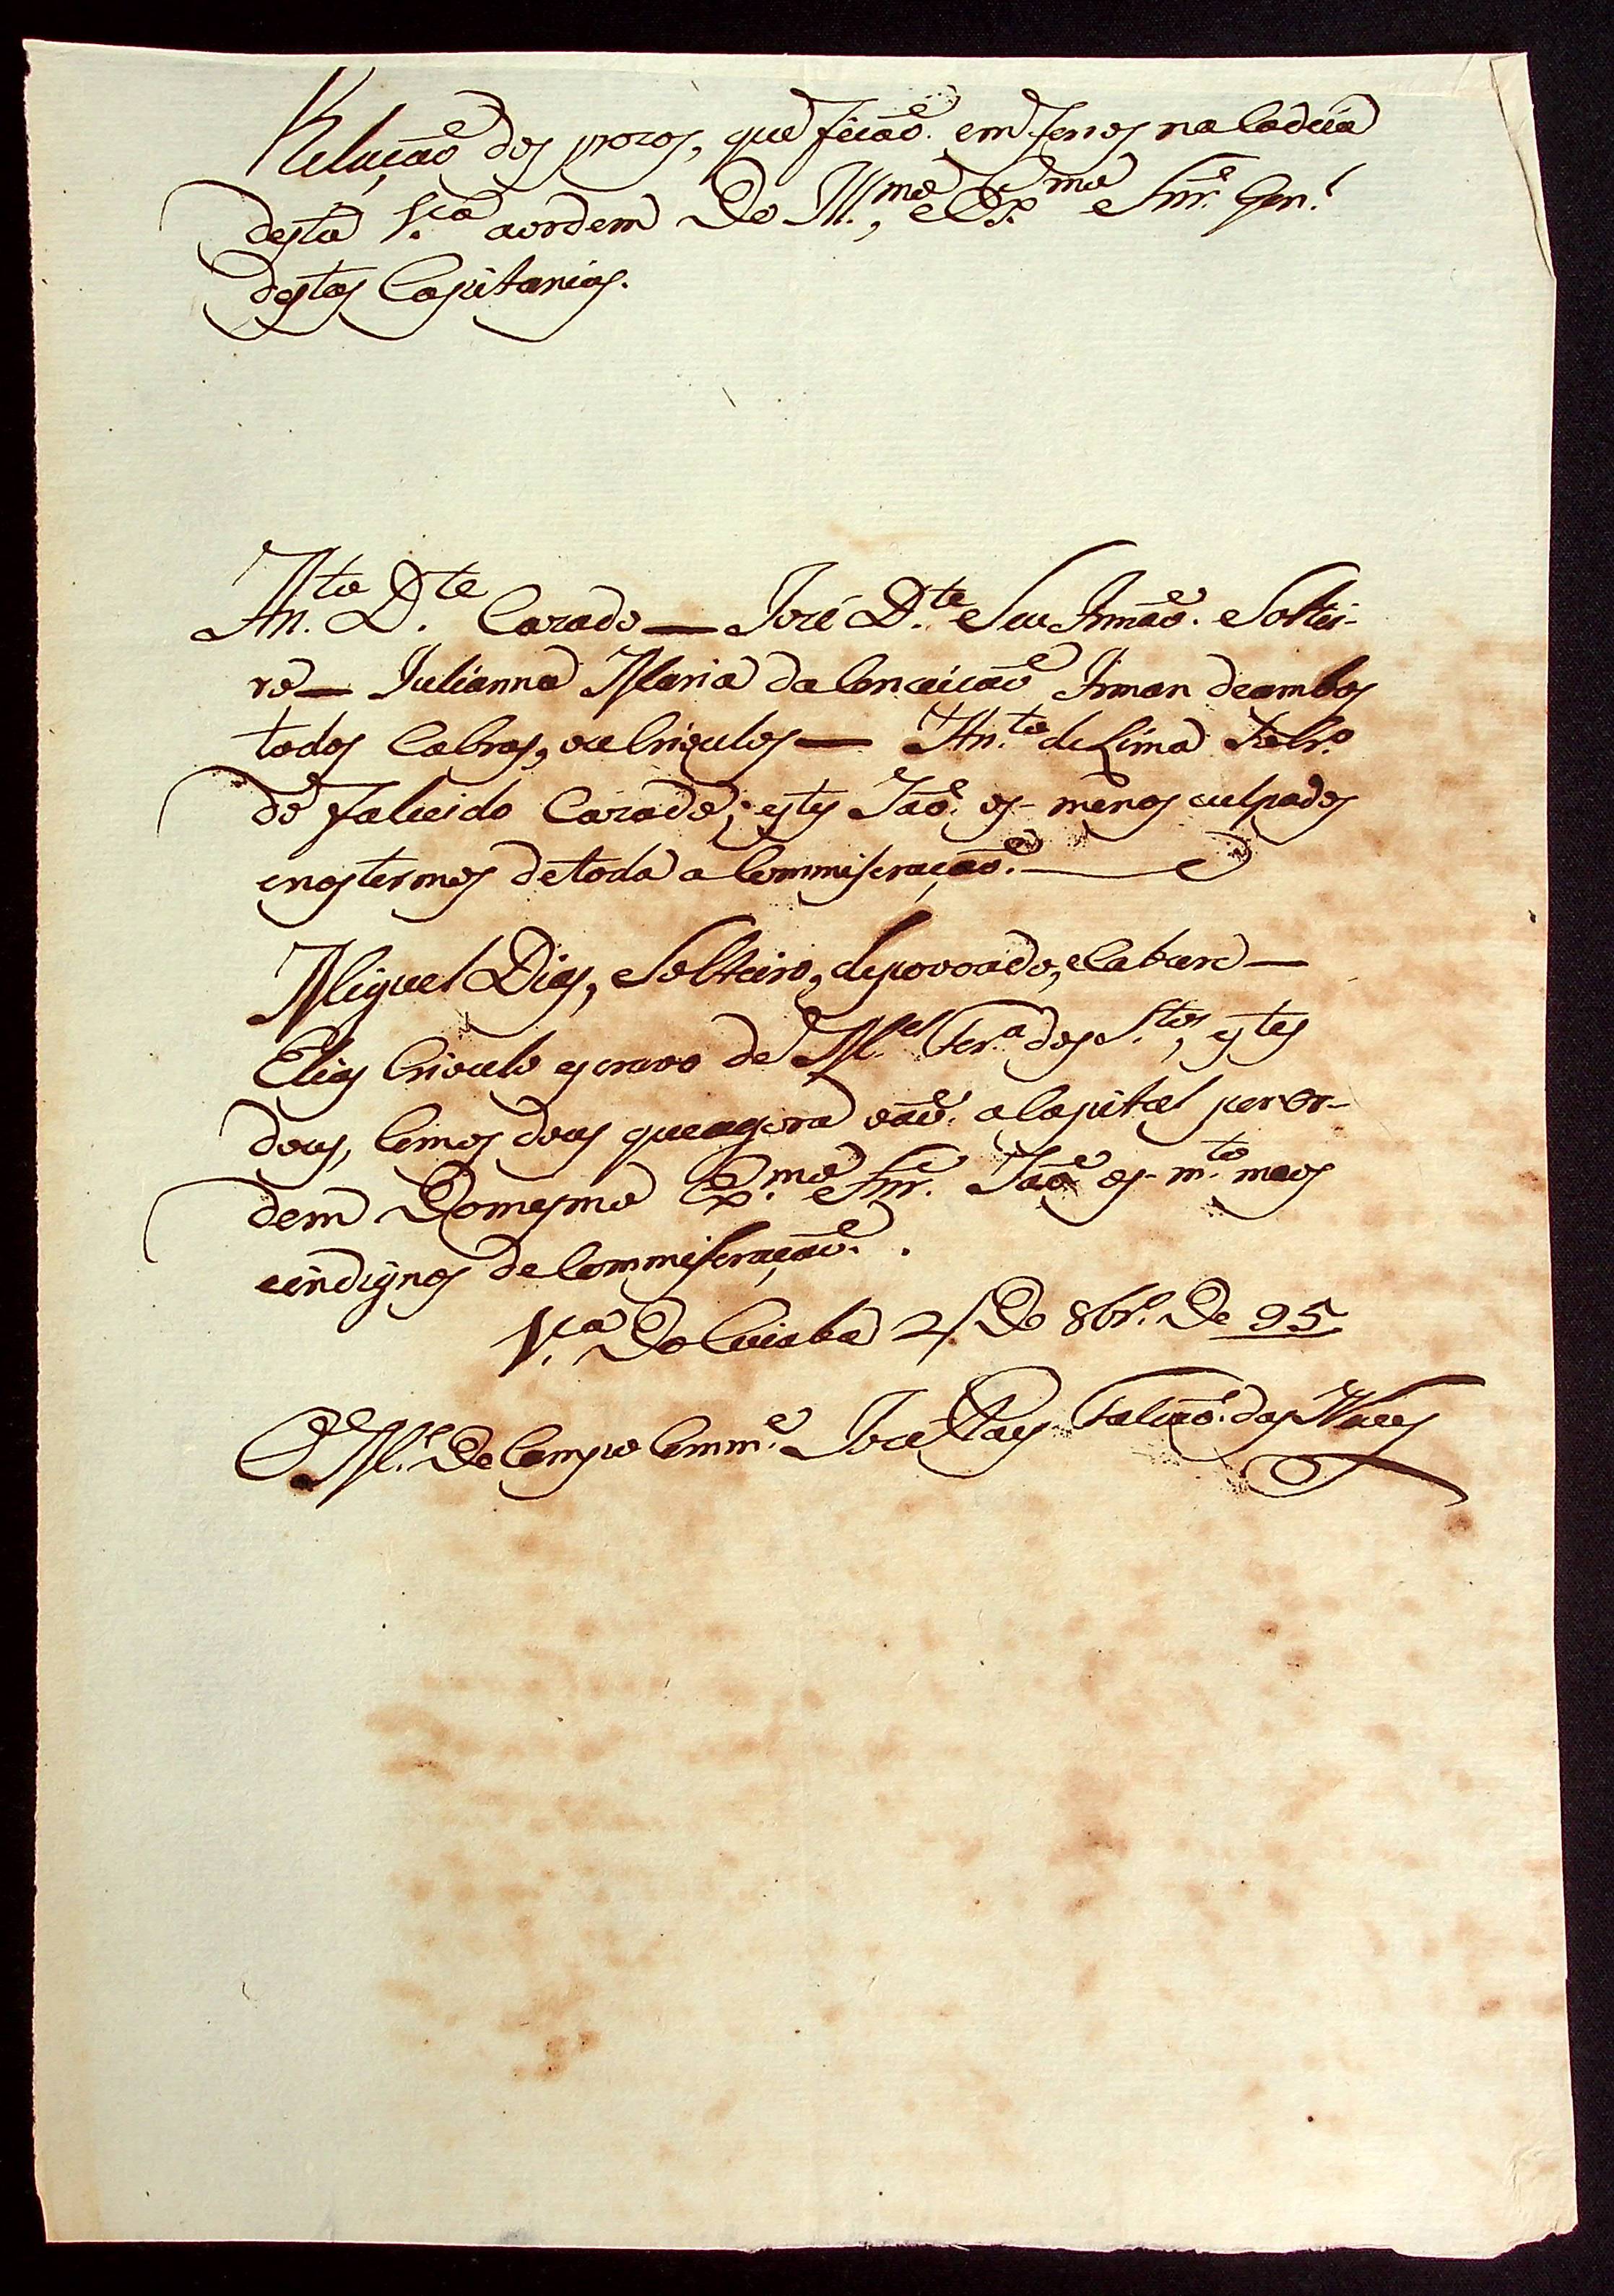 Relação dos prezos, que ficão em ferros na Cadeia
desta V.ª aordem Do Ill.mo, e Ex.mo Snr. Gen.l
destas Capitanias.
An.to D.te Cazado — José D.te Seu Irmão Soltei-
ro — Julianna Maria da Conceicão Irman deambos
todos Cabras, ou Crioulos — An.to de Lima
de falecido Cazado; estes são os menos culpados
enostermos detoda a Commiseração.
Miguel Dias, Solteiro, depovoado, e
Elias Crioulo escravo de M.el Fer.ª dos S.tos, estes
dous, como os dous queagora vão a Capital por or-
dem Domesmo Ex.mo Snr. São os m.to maos
eindignos de Commiseração.
V.ª Do Cuiaba 2/ De 8br.o De 95
O M.e De Campo Comm.e José Paes Falcão das Neves